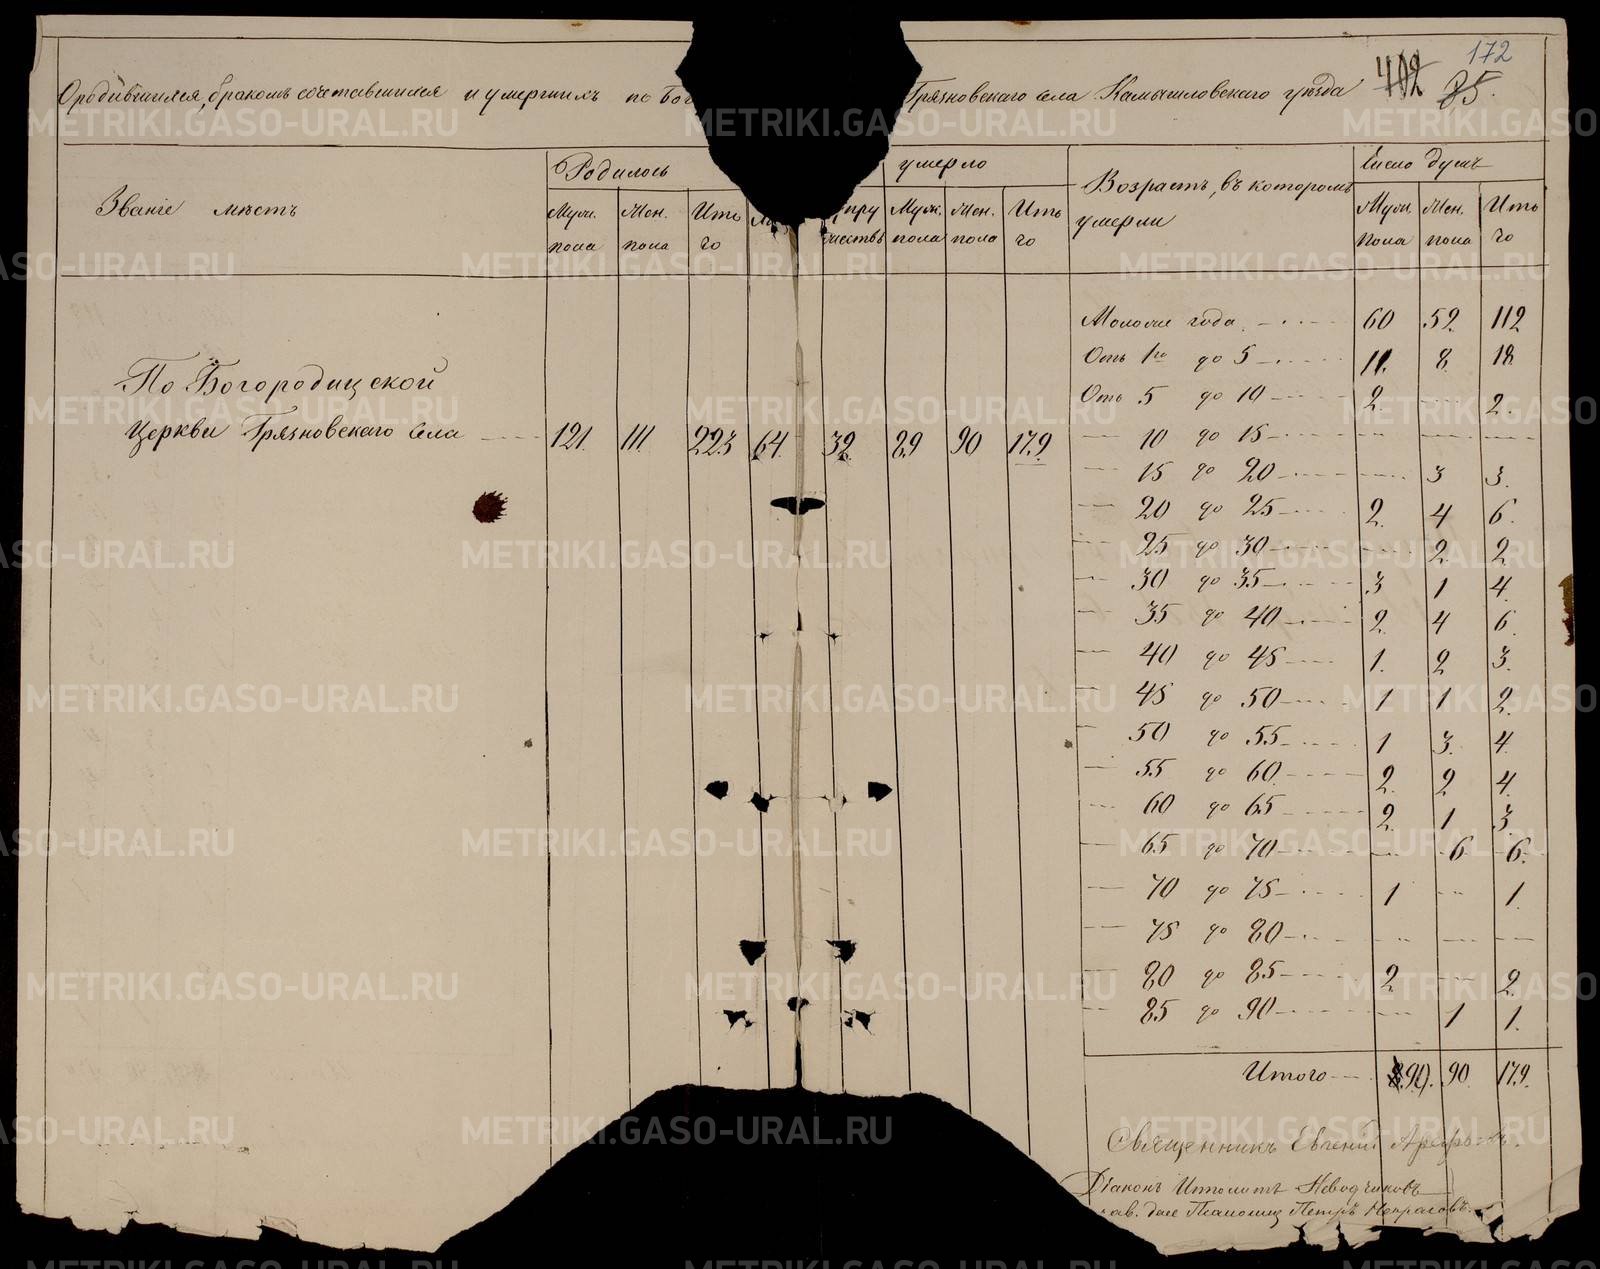 172
402 85.
О родившихся, бракомъ сочетавшихся и умершихъ по Бог Грязновскаго села Камышловскаго уѣзда
Званіе мѣстъ
Родилось
умерло
Возрастъ, въ которомъ умерли
Число душъ
Муж. пола Жен. пола Итого
Муж. пола Жен. пола Итого
Муж. пола Жен. пола Итого
По Богородицской
церкви Грязновскаго села 121 111 223 64 32 89 90 179
Моложе года 60 52 112
Отъ 1го до 5 11. 8. 18
Отъ 5 до 10 2. 2.
10 до 15
15 до 20 3 3.
20 до 25 2. 4 6.
25 до 30 2. 2
30 до 35 3 1 4.
35 до 40 2. 4 6.
40 до 45 1. 2 3.
45 до 50 1 1 2.
50 до 55 1 3. 4
55 до 60 2. 2 4.
60 до 65 2. 1 3.
65 до 70 6 6.
70 до 75 1 1.
75 до 80
80 до 85 2 2.
85 до 90 1 1.
Итого 89. 90 179.
Священникъ Евгеній
Діаконъ Ипполитъ Неводчиковъ
Псаломщ Петръ Некрасовъ
METRIKI.GASO-URAL.RU